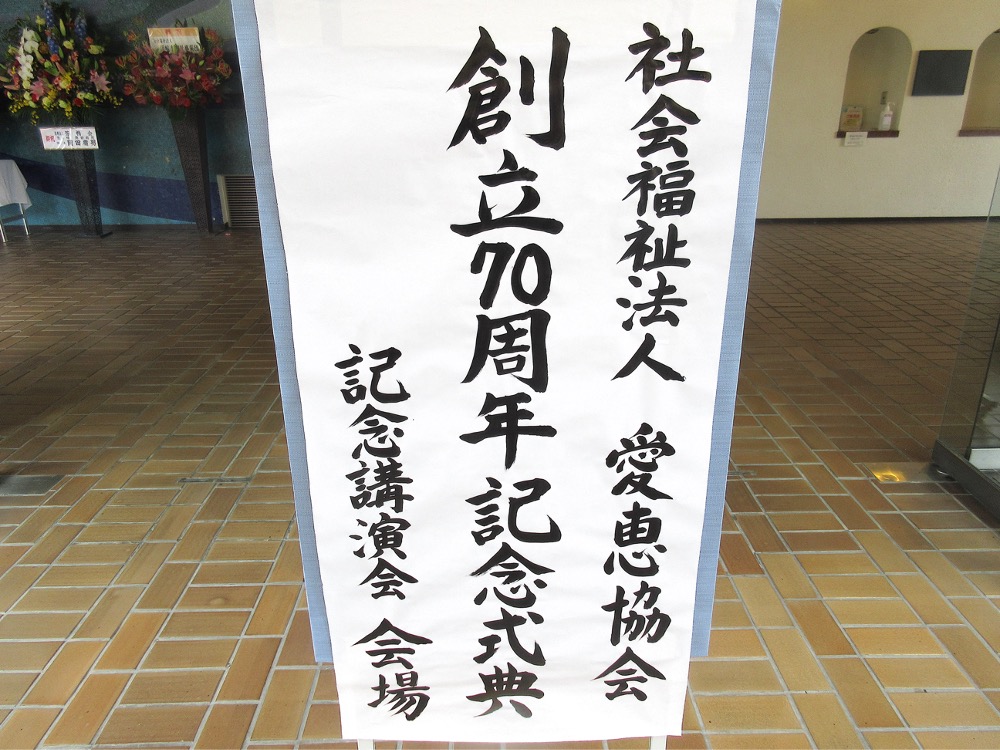 社会福祉法人 愛恵協会
創立70周年記念式典
記念講演会 会場